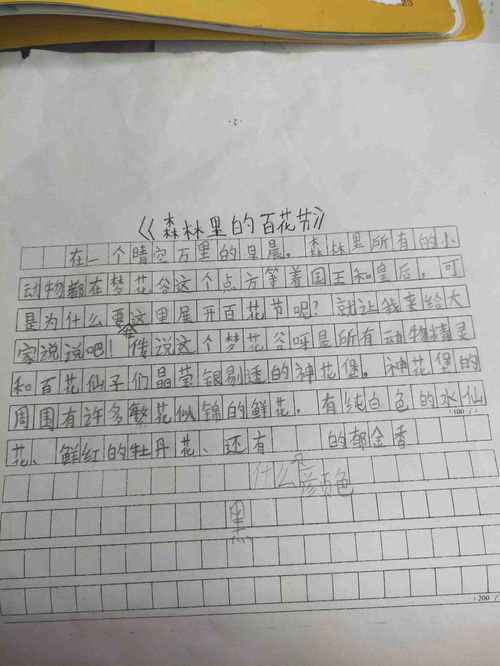 23
·2·
《森林里的百花节》
在一个晴空万里的早晨。森林里所有的小
动物都在梦花谷这个点方等着国王和皇后。可
是为什么要在这里展开百花节呢？就让我来给大
家说说吧！传说这个梦花谷呀是所有动物精灵
和百花仙子们晶莹银剔透的神花堡。神花堡的
周围有许多繁花似锦的鲜花。有纯白色的水仙
(100
花、鲜红的牡丹花、还有 的郁金香
什么
颜色
黑
(200